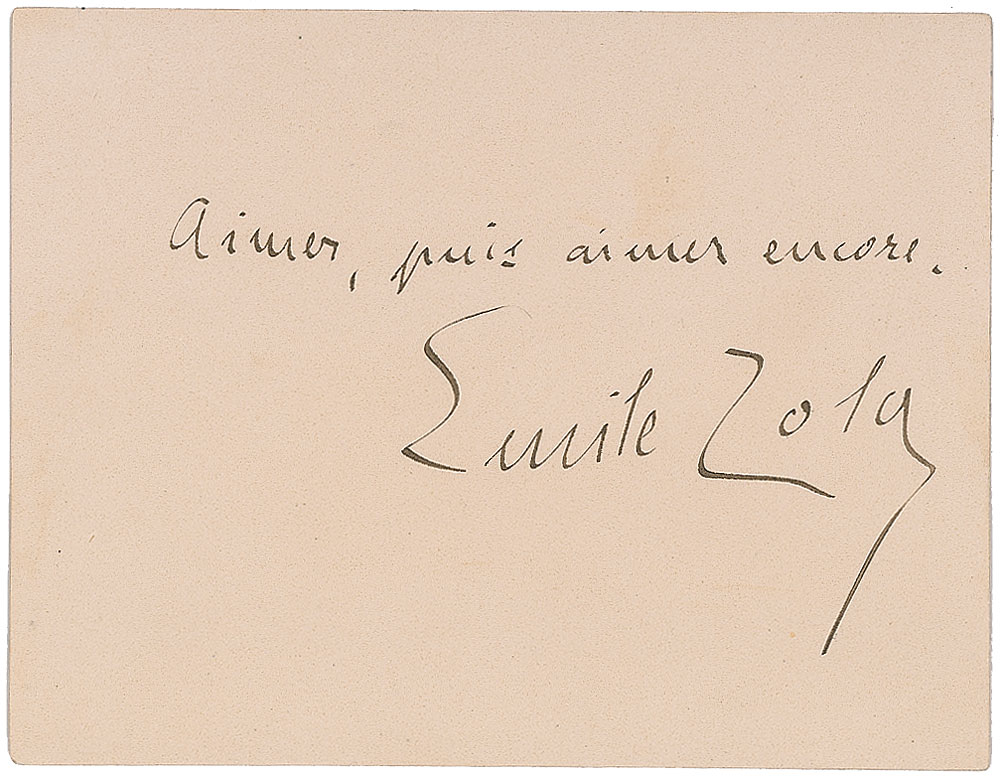 Aimer, puis aimer encore.
Emile Zola